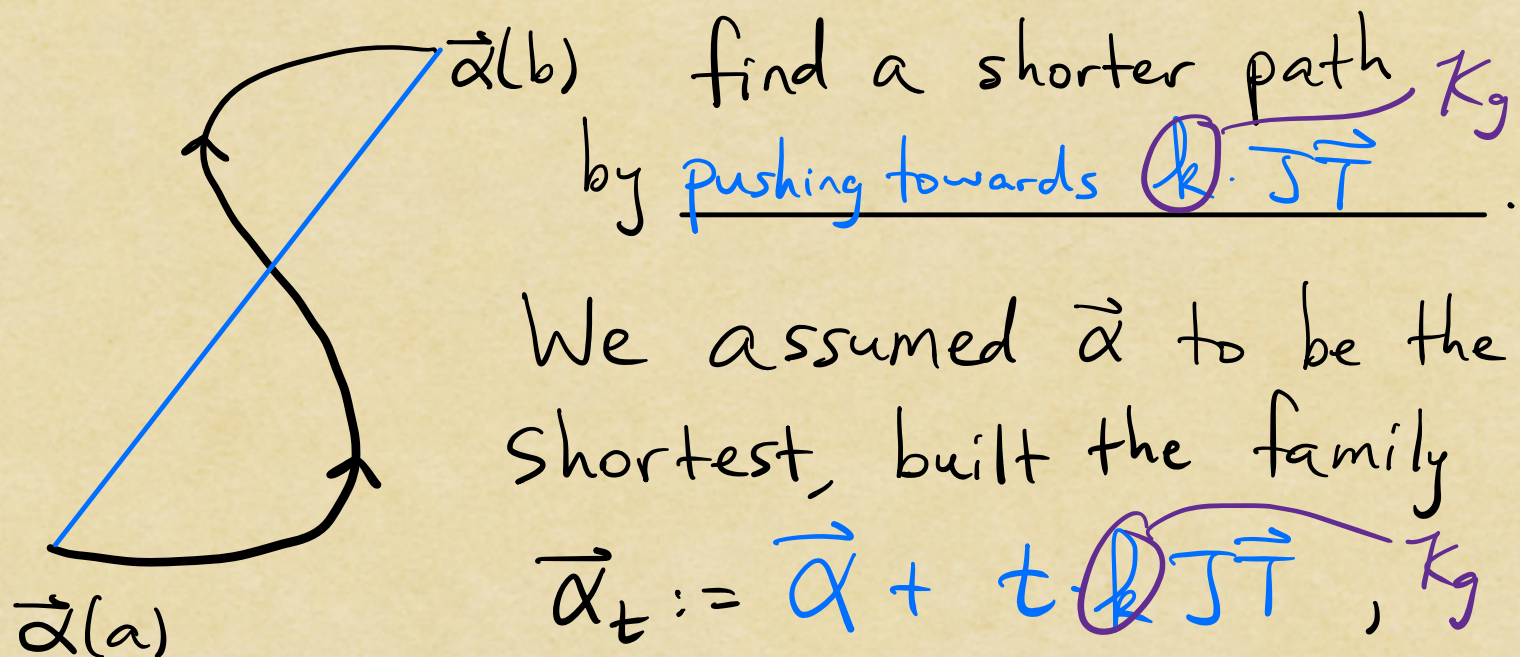 α⃗(b) find a shorter path K_g
by pushing towards k · JT⃗ .
We assumed α⃗ to be the
shortest, built the family
α⃗_t := α⃗ + t·k JT⃗ , K_g
α⃗(a)